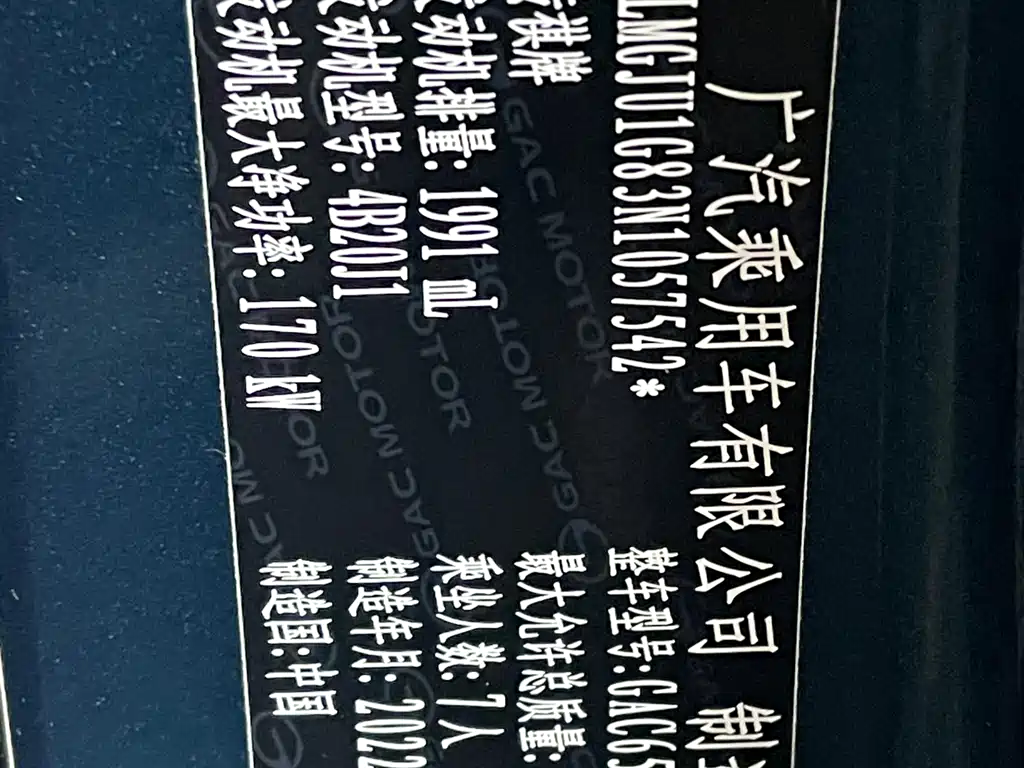 广汽乘用车有限公司 制
LMGJU1G83N1057542*
整车型号:GAC65
棋牌
最大允许总质量:
动机排量: 1991 mL
乘坐人数: 7人
动机型号: 4B20J1
制造年月: 2022
动机最大净功率: 170 kW
制造国: 中国
GAC MOTOR
GAC MOTOR
GAC MOTOR